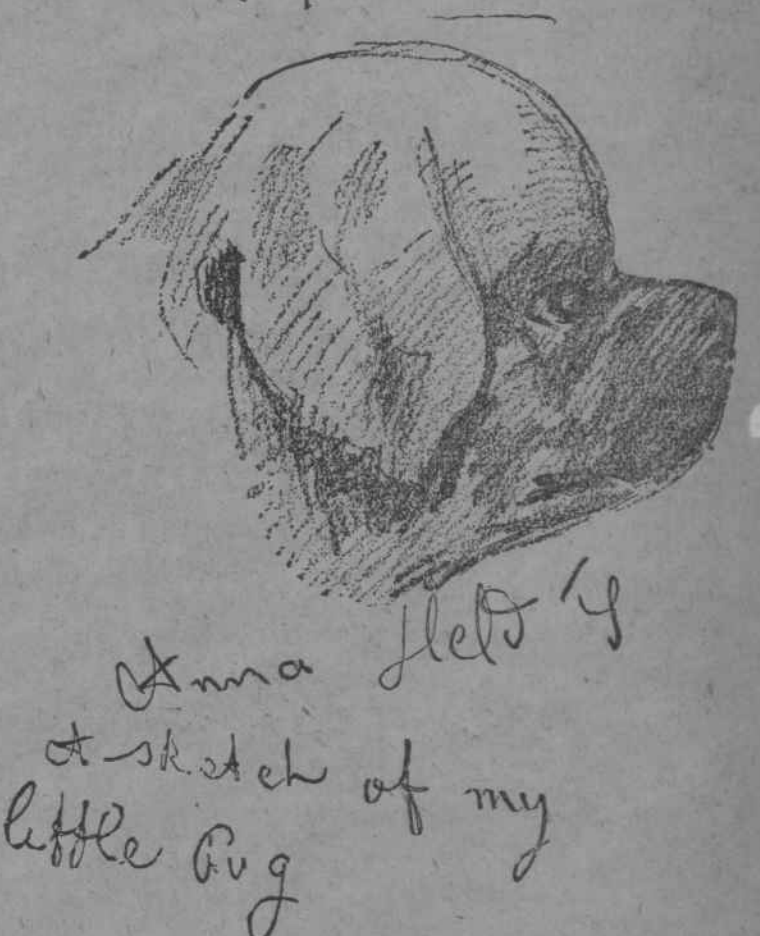 Anna Held's
A sketch of my
little Pug